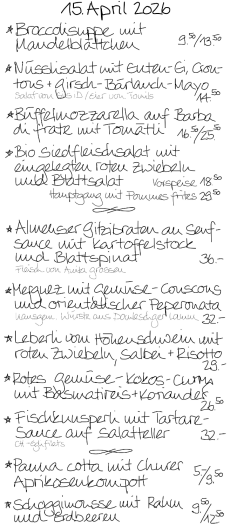 15. April 2026
* Broccolisuppe mit
Mandelblättchen 9.50/13.50
* Nüsslisalat mit Enten-Ei, Croû-
tons + Girsch-Bärlauch-Mayo
14.50
* Büffelmozzarella auf Barba
di frate mit Tomätli 16.50/25.50
* Bio Siedfleischsalat mit
eingelegten roten Zwiebeln
und Blattsalat Vorspeise 18.50
Hauptgang mit Pommes frites 29.50
* Almenser Gitzibraten an Senf-
sauce mit Kartoffelstock
und Blattspinat 36.-
Fleisch von
* Merguez mit Gemüse-Couscous
und orientalischer Peperonata
32.-
* Leberli vom Hohenschwein mit
roten Zwiebeln, Salbei + Risotto
29.-
* Rotes Gemüse-Kokos-Curry
mit Basmatireis + Koriander
26.50
* Fischknusperli mit Tartare-
Sauce auf Salatteller 32.-
* Panna cotta mit Churer
Aprikosenkompott 5/9.50
* Schoggimousse mit Rahm
und Erdbeeren 9.50/12.50